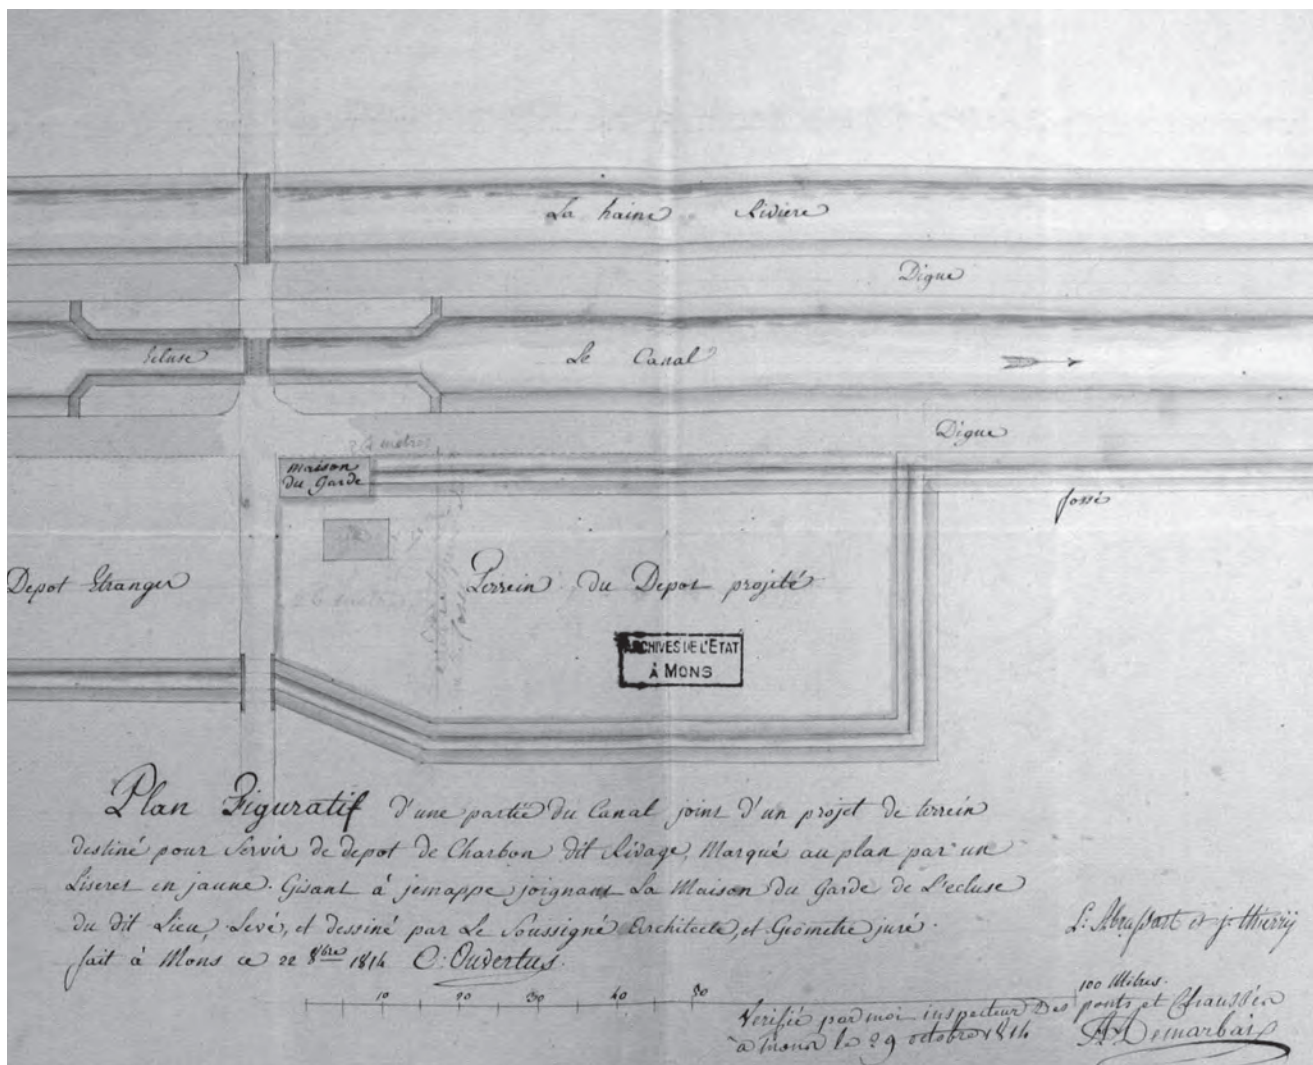 La haine Riviere
Digue
Ecluse
Le Canal
Digue
26 mètres
maison
du Garde
fossé
Depot Etranger
Terrein du Depot projété
26 mètres
ARCHIVES DE L'ETAT
À MONS
Plan Figuratif d'une partie du Canal joint d'un projet de terrein
destiné pour servir de depot de Charbon dit Rivage, Marqué au plan par un
Liseret en jaune. Gisant à jemappe joignant La Maison du Garde de L'ecluse
du dit Lieu, Levé, et dessiné par Le Soussigné Architecte, et Géometre juré.
fait à Mons ce 22 8bre 1814 C: Ouvertus.
L: Abrassart et j: thierry
10 20 30 40 50 100 Mètres.
Verifié par moi inspecteur Des ponts et Chaussées
à mons le 29 octobre 1814 Demarbaix